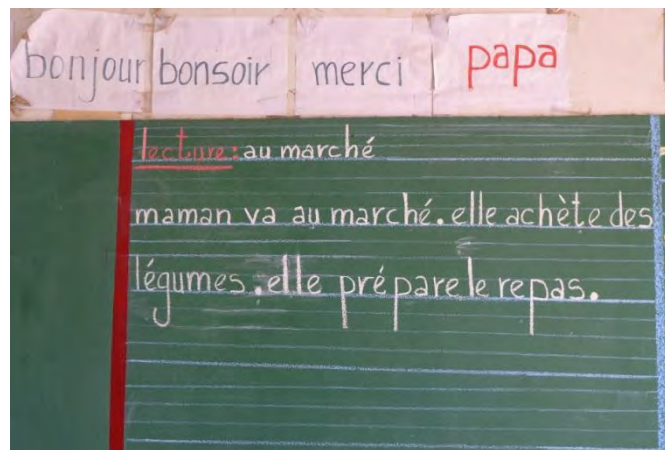 bonjour bonsoir merci papa
lecture: au marché
maman va au marché. elle achète des
légumes. elle prépare le repas.